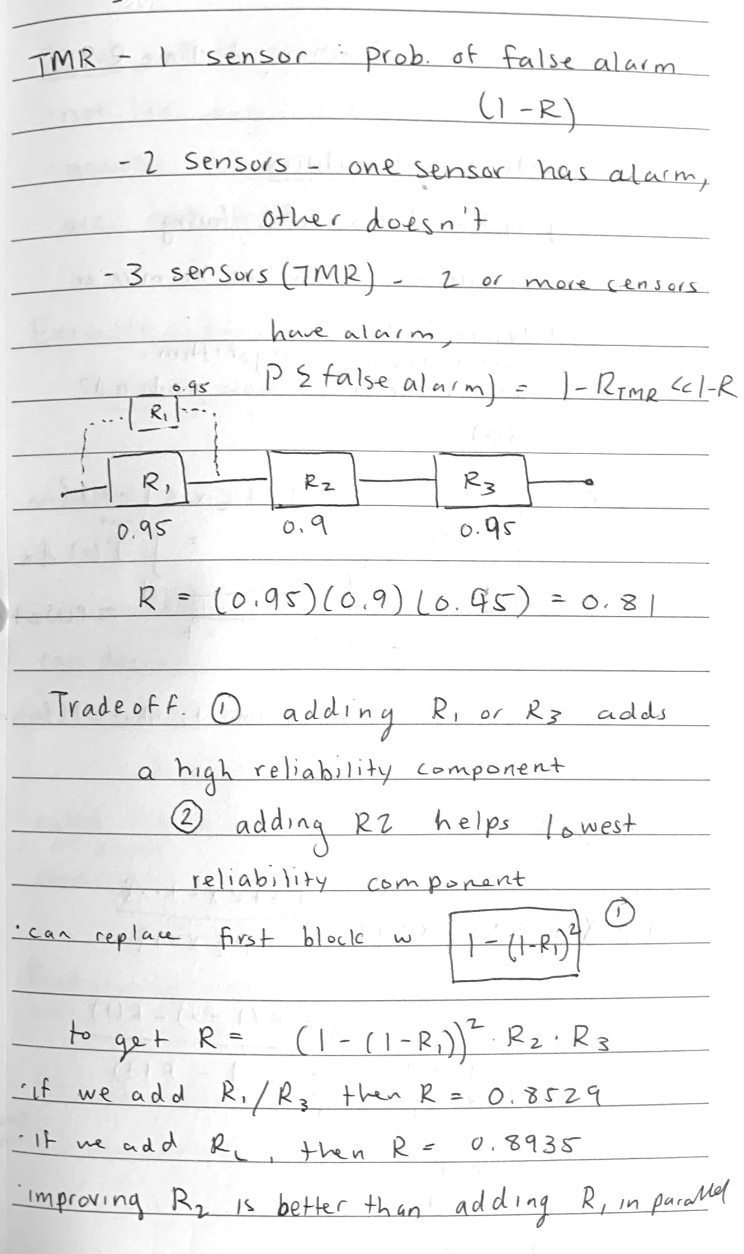 TMR - 1 sensor : prob. of false alarm
(1-R)
- 2 sensors - one sensor has alarm,
other doesn't
- 3 sensors (TMR) - 2 or more censors
have alarm,
P{false alarm} = 1-R_TMR << 1-R
0.95
R₁
R₁ R₂ R₃
0.95 0.9 0.95
R = (0.95)(0.9)(0.95) = 0.81
Tradeoff. ① adding R₁ or R₃ adds
a high reliability component
② adding R2 helps lowest
reliability component
· can replace first block w 1-(1-R₁)² ①
to get R = (1-(1-R₁))² · R₂ · R₃
· if we add R₁/R₃ then R = 0.8529
· If we add R₂, then R = 0.8935
· improving R₂ is better than adding R₁ in parallel